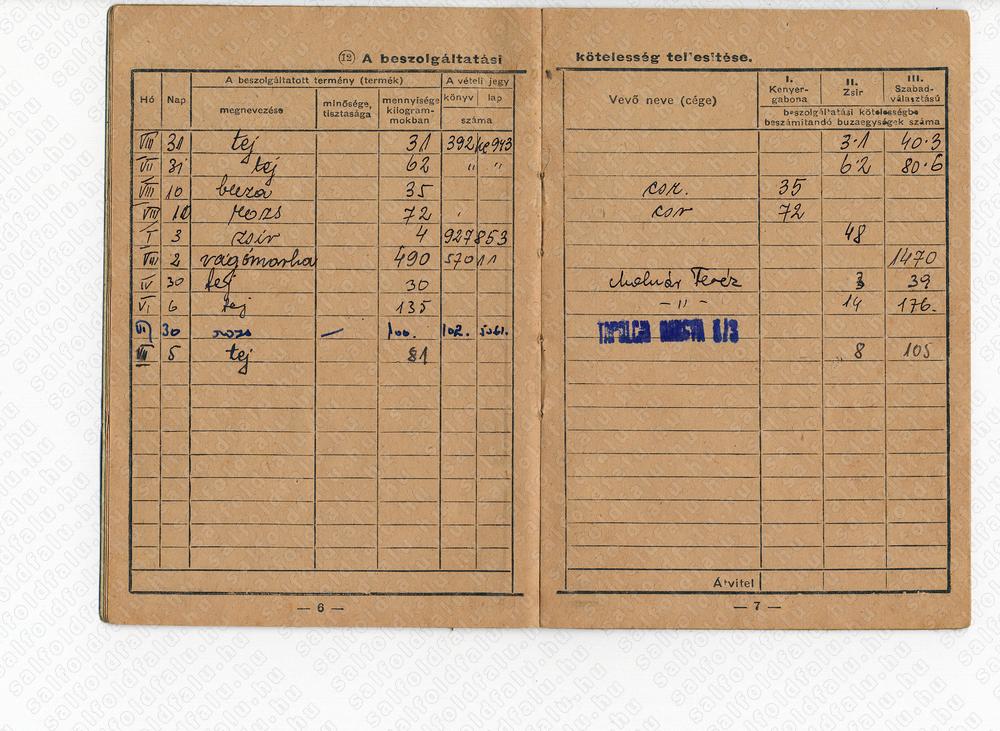 ⑫ A beszolgáltatási kötelesség teljesítése.
Hó Nap A beszolgáltatott termény (termék) A vételi jegy Vevő neve (cége) I. Kenyer-gabona II. Zsir III. Szabad-választású
megnevezése minősége, tisztasága mennyisége kilogram-mokban könyv lap száma beszolgáltatási kötelességbe beszámitandó buzaegységek száma
VIII 31 tej 31 392 943 3·1 40·3
VII 31 tej 62 " " 6·2 80·6
VIII 10 buza 35 cor. 35
VIII 10 rozs 72 cor 72
I 3 zsir 4 927853 48
VIII 2 vágómarha 490 570 11 1470
IV 30 tej 30 Molnár Terez 3 39
VI 6 tej 135 – " – 14 176.
VII 30 rozs — 100. 102. 5061.
TAPOLCA 8/3
VIII 5 tej 81 8 105
Átvitel
— 6 —
— 7 —
salfoldfalu.hu